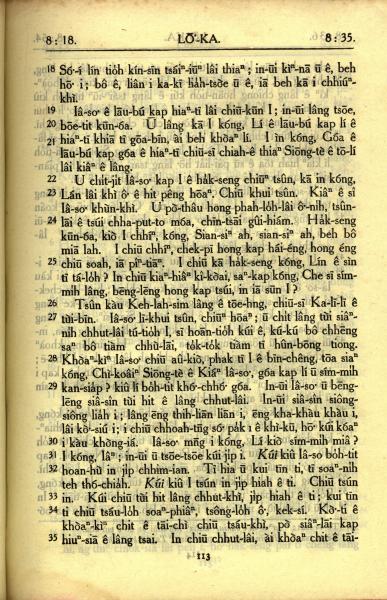 8 : 18. LŌ͘-KA. 8 : 35.
18 Só͘-í lín tio̍h kín-sīn tsáiⁿ-iūⁿ lâi thiaⁿ ; in-ūi kìⁿ-nā ū ê, beh
hō͘ i ; bô ê, liân i ka-kī lia̍h-tsòe ū ê, iā beh kā i chhiúⁿ-
khì.
19 Iâ-so͘ ê lāu-bú kap hiaⁿ-tī lâi chiū-kūn I ; in-ūi lâng tsōe,
20 bōe-tit kūn-óa. Ū lâng kā I kóng, Lí ê lāu-bú kap lí ê
21 hiaⁿ-tī khiā tī gōa-bīn, ài beh khòaⁿ lí. I ìn kóng, Góa ê
lāu-bú kap góa ê hiaⁿ-tī chiū-sī chiah-ê thiaⁿ Siōng-tè ê tō-lí
lâi kiâⁿ ê lâng.
22 Ū chi̍t-ji̍t Iâ-so͘ kap I ê ha̍k-seng chiūⁿ tsûn, kā in kóng,
23 Lán lâi khì ô͘ ê hit pêng hōaⁿ. Chiū khui tsûn. Kiâⁿ ê sî
Iâ-so͘ khùn-khì. Ū pō-thâu hong-pha-lo̍h-lâi ô͘-ni̍h, tsûn-
24 lāi ê tsúi chha-put-to móa, chīn-tsāi guî-hiám. Ha̍k-seng
kūn-óa, kiò I chhíⁿ, kóng, Sian-siⁿ ah, sian-siⁿ ah, beh bô
miā lah. I chiū chhíⁿ, chek-pī hong kap hái-éng, hong éng
25 chiū soah, iā pîⁿ-tiāⁿ. I chiū kā ha̍k-seng kóng, Lín ê sìn
tī tá-lo̍h ? In chiū kiaⁿ-hiâⁿ kî-kòai, saⁿ-kap kóng, Che sī sím-
mi̍h lâng, bēng-lēng hong kap tsúi, in iā sūn I ?
26 Tsûn kàu Keh-lah-sim lâng ê tōe-hng, chiū-sī Ka-lī-lī ê
27 tùi-bīn. Iâ-so͘ lī-khui tsûn, chiūⁿ hōaⁿ ; ū chi̍t lâng tùi siâⁿ-
ni̍h chhut-lâi tú-tio̍h I, sī hoān-tio̍h kúi ê, kú-kú bô chhēng
saⁿ bô tiàm chhù-lāi, to̍k-to̍k tiàm tī hûn-bōng tiong.
28 Khòaⁿ-kìⁿ Iâ-so͘ chiū aû-kiò, phak tī I ê bīn-chêng, tōa siaⁿ
kóng, Chì-koâiⁿ Siōng-tè ê Kiáⁿ Iâ-so͘, góa kap lí ū sím-mi̍h
29 kan-sia̍p ? kiû lí bo̍h-tit khó͘-chhó͘ góa. In-ūi Iâ-so͘ ū bēng-
lēng siâ-sîn tùi hit ê lâng chhut-lâi. In-ūi siâ-sîn siông-
siông lia̍h i ; lâng ēng thih-liān liān i, ēng kha-khàu khàu i,
lâi kò͘-siú i ; i chiū chhoah-tn̄g só͘ pa̍k i ê khì-kū, hō͘ kúi kóaⁿ
30 i kàu khòng-iá. Iâ-so͘ mn̄g i kóng, Lí kiò sím-mi̍h miâ ?
31 I kóng, Iâⁿ ; in-ūi ū tsōe-tsōe kúi ji̍p i. Kúi kiû Iâ-so͘ bo̍h-tit
32 hoan-hù in ji̍p chhim-ian. Tī hia ū kui tīn ti, tī soaⁿ-ni̍h
teh thó-chia̍h. Kúi kiû I tsún in ji̍p hiah ê ti. Chiū tsún
33 in. Kúi chiū tùi hit lâng chhut-khì, ji̍p hiah ê ti ; kui tīn
34 ti chiū tsáu-lo̍h soaⁿ-phiâⁿ, tsông-lo̍h ô͘, kek-sí. Kò͘-ti ê
khòaⁿ-kìⁿ chit ê tāi-chì chiū tsáu-khì, pò siâⁿ-lāi kap
35 hiuⁿ-siā ê lâng tsai. In chiū chhut-lâi, ài khòaⁿ chit ê tāi-
113